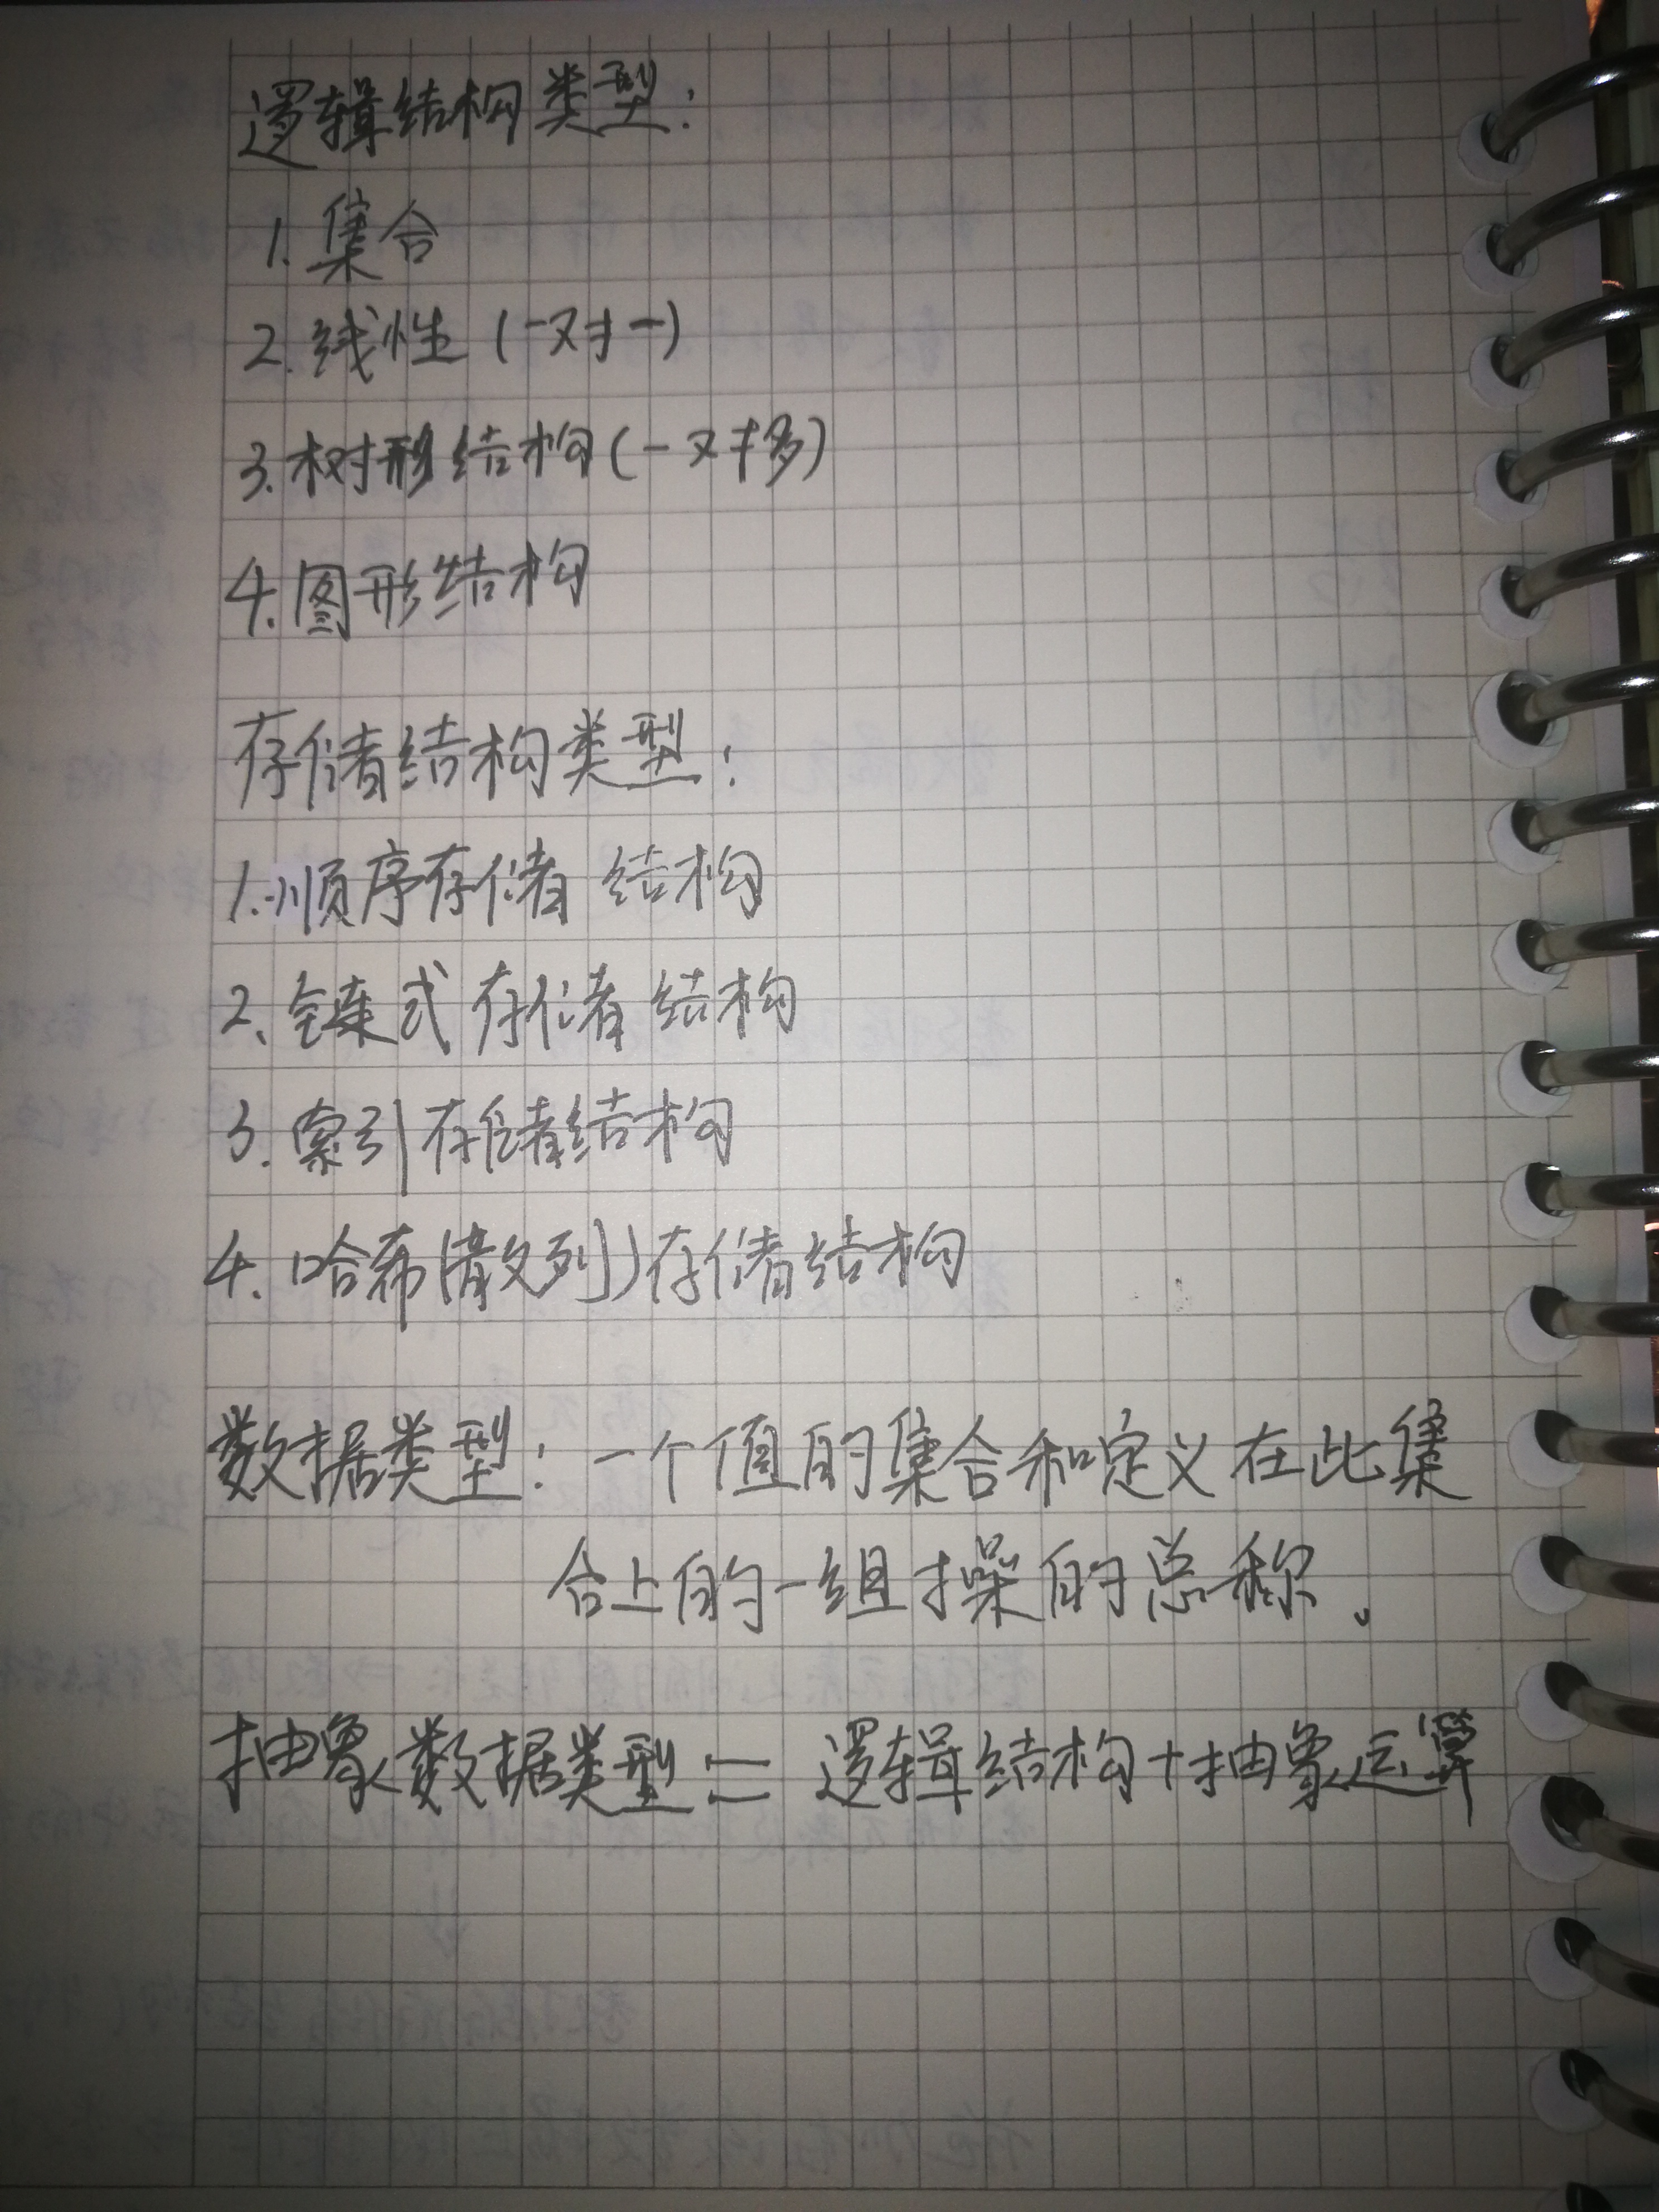 逻辑结构类型:
1. 集合
2. 线性 (一对一)
3. 树形结构(一对多)
4. 图形结构
存储结构类型:
1. 顺序存储结构
2、链式存储结构
3. 索引存储结构
4. 哈希(散列)存储结构
数据类型: 一个值的集合和定义在此集
合上的一组操的总称。
抽象数据类型 = 逻辑结构+抽象运算